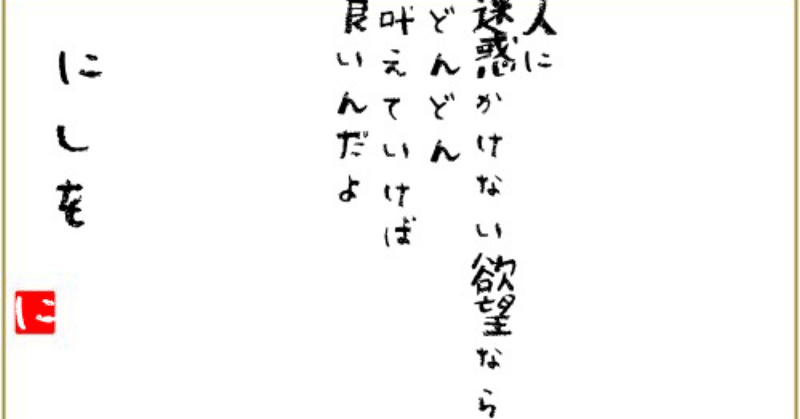 人に
迷惑かけない欲望なら
どんどん
叶えていけば
良いんだよ
にしを
に